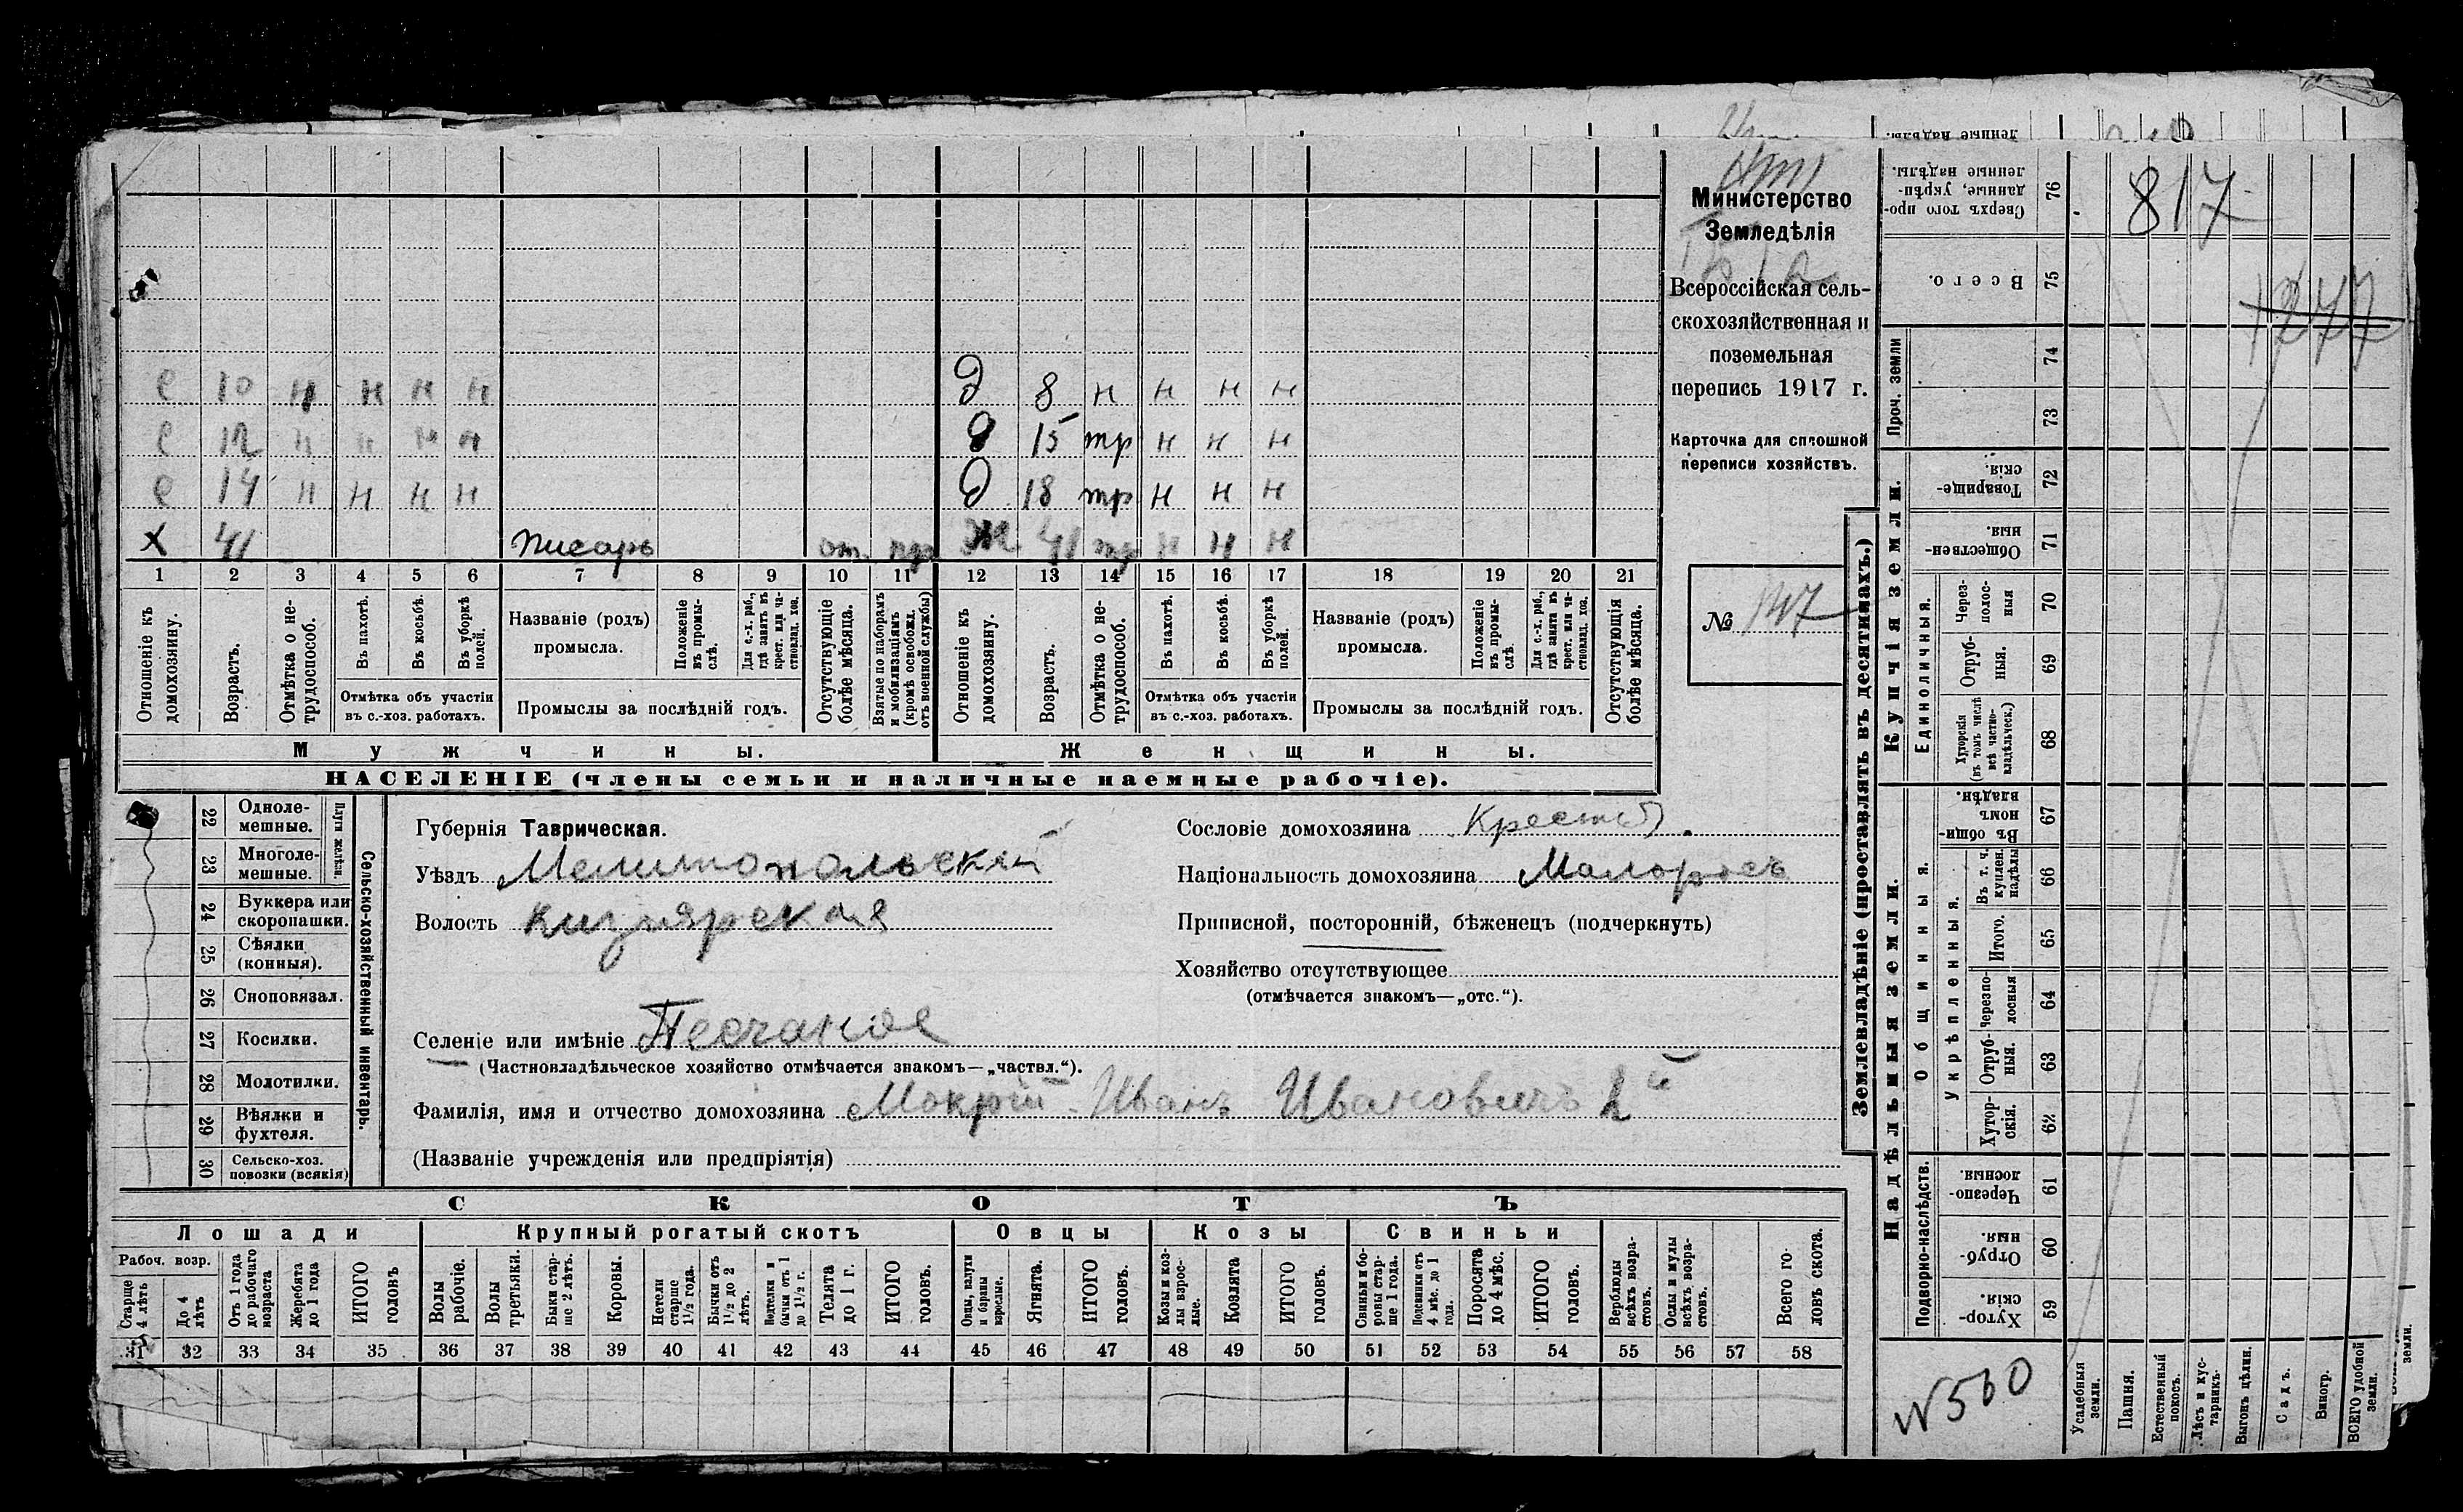 817
1277
Министерство
Земледѣлія
Всероссійская сель-
скохозяйственная и
поземельная
перепись 1917 г.
Карточка для сплошной
переписи хозяйствъ.
№ 147
с 10 н н н н д 8 н н н н
с 12 н н н н д 15 тр н н н
с 14 н н н н д 18 тр н н н
х 41 писарь от. пр ж 41 тр н н н
1 2 3 4 5 6 7 8 9 10 11 12 13 14 15 16 17 18 19 20 21
Отношеніе къ домохозяину.
Возрастъ.
Отмѣтка о не-трудоспособ.
Въ пахотѣ.
Въ косьбѣ.
Въ уборкѣ полей.
Отмѣтка объ участіи въ с.-хоз. работахъ.
Названіе (родъ) промысла.
Положеніе въ промы-слѣ.
Для с.-х. раб., гдѣ занятъ въ крест. или ча-стновлад. хоз.
Промыслы за послѣдній годъ.
Отсутствующіе болѣе мѣсяца.
Взятые по наборамъ и мобилизаціямъ (кромѣ освобожд. отъ военной службы)
Отношеніе къ домохозяину.
Возрастъ.
Отмѣтка о не-трудоспособ.
Въ пахотѣ.
Въ косьбѣ.
Въ уборкѣ полей.
Отмѣтка объ участіи въ с.-хоз. работахъ.
Названіе (родъ) промысла.
Положеніе въ промы-слѣ.
Для с.-х. раб., гдѣ занята въ крест. или ча-стновлад. хоз.
Промыслы за послѣдній годъ.
Отсутствующія болѣе мѣсяца.
Мужчины. Женщины.
НАСЕЛЕНІЕ (члены семьи и наличные наемные рабочіе).
Сельско-хозяйственный инвентарь.
Плуги желѣзн.
22 Одноле-мешные.
23 Многоле-мешные.
24 Буккера или скоропашки.
25 Сѣялки (конныя).
26 Сноповязал.
27 Косилки.
28 Молотилки.
29 Вѣялки и фухтеля.
30 Сельско-хоз. повозки (всякія)
Губернія Таврическая.
Уѣздъ Мелитопольскій
Волость Кизлярская
Селеніе или имѣніе Песчаное
(Частновладѣльческое хозяйство отмѣчается знакомъ—„частвл.“).
Фамилія, имя и отчество домохозяина Мокрій Иванъ Ивановичъ 2й
(Названіе учрежденія или предпріятія)
Сословіе домохозяина Крест.
Національность домохозяина Малороссъ
Приписной, посторонній, бѣженецъ (подчеркнуть)
Хозяйство отсутствующее
(отмѣчается знакомъ—„отс.“).
СКОТЪ
Лошади Крупный рогатый скотъ Овцы Козы Свиньи
Рабоч. возр.
Старше 4 лѣтъ
До 4 лѣтъ
Отъ 1 года до рабочаго возраста
Жеребята до 1 года
ИТОГО головъ
Волы рабочіе.
Волы третьяки.
Быки стар-ше 2 лѣтъ.
Коровы.
Нетели старше 1½ года.
Бычки отъ 1½ до 2 лѣтъ.
Подтелки и бычки отъ 1 до 1½ г.
Телята до 1 г.
ИТОГО головъ.
Овцы, валухи и бараны взрослые.
Ягнята.
ИТОГО головъ.
Козы и коз-лы взрос-лые.
Козлята
ИТОГО головъ.
Свиньи и бо-ровы стар-ше 1 года.
Подсвинки отъ 4 мѣс. до 1 года.
Поросята до 4 мѣс.
ИТОГО головъ.
Верблюды всѣхъ возра-стовъ.
Ослы и мулы всѣхъ возра-стовъ.
Всего го-ловъ скота.
31 32 33 34 35 36 37 38 39 40 41 42 43 44 45 46 47 48 49 50 51 52 53 54 55 56 57 58
Землевладѣніе (проставлять въ десятинахъ.)
76 Сверхъ того про-данные, укрѣп-ленные надѣлы.
75 Всего.
Купчія земли.
Проч. земли
74
73
72 Товарище-скія.
71 Обществен-ныя.
Единоличныя.
70 Через-полос-ныя
69 Отруб-ныя.
68 Хуторскія (въ томъ числѣ всѣ частно-владѣльческ.)
Надѣльныя земли.
Общинныя.
67 Въ общи-номъ владѣн.
66 Въ т. ч. куплен. надѣлы
Укрѣпленныя.
65 Итого.
64 Черезпо-лосныя
63 Отруб-ныя.
62 Хутор-скія.
Подворно-наслѣдств.
61 Черезпо-лосныя
60 Отруб-ныя.
59 Хутор-скія.
N 560
Усадебныя земли.
Пашня.
Естественный покосъ.
Лѣсъ и кус-тарникъ.
Выгонъ цѣлин.
Садъ.
Виногр.
ВСЕГО удобной земли.